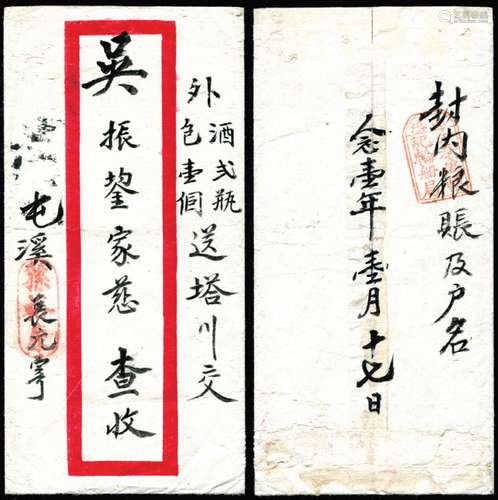 外酒弍瓶
色壹個
送塔川交
吳振鋆家慈查收
屯溪
長元寄
封内粮賬及户名
念壹年壹月十七日